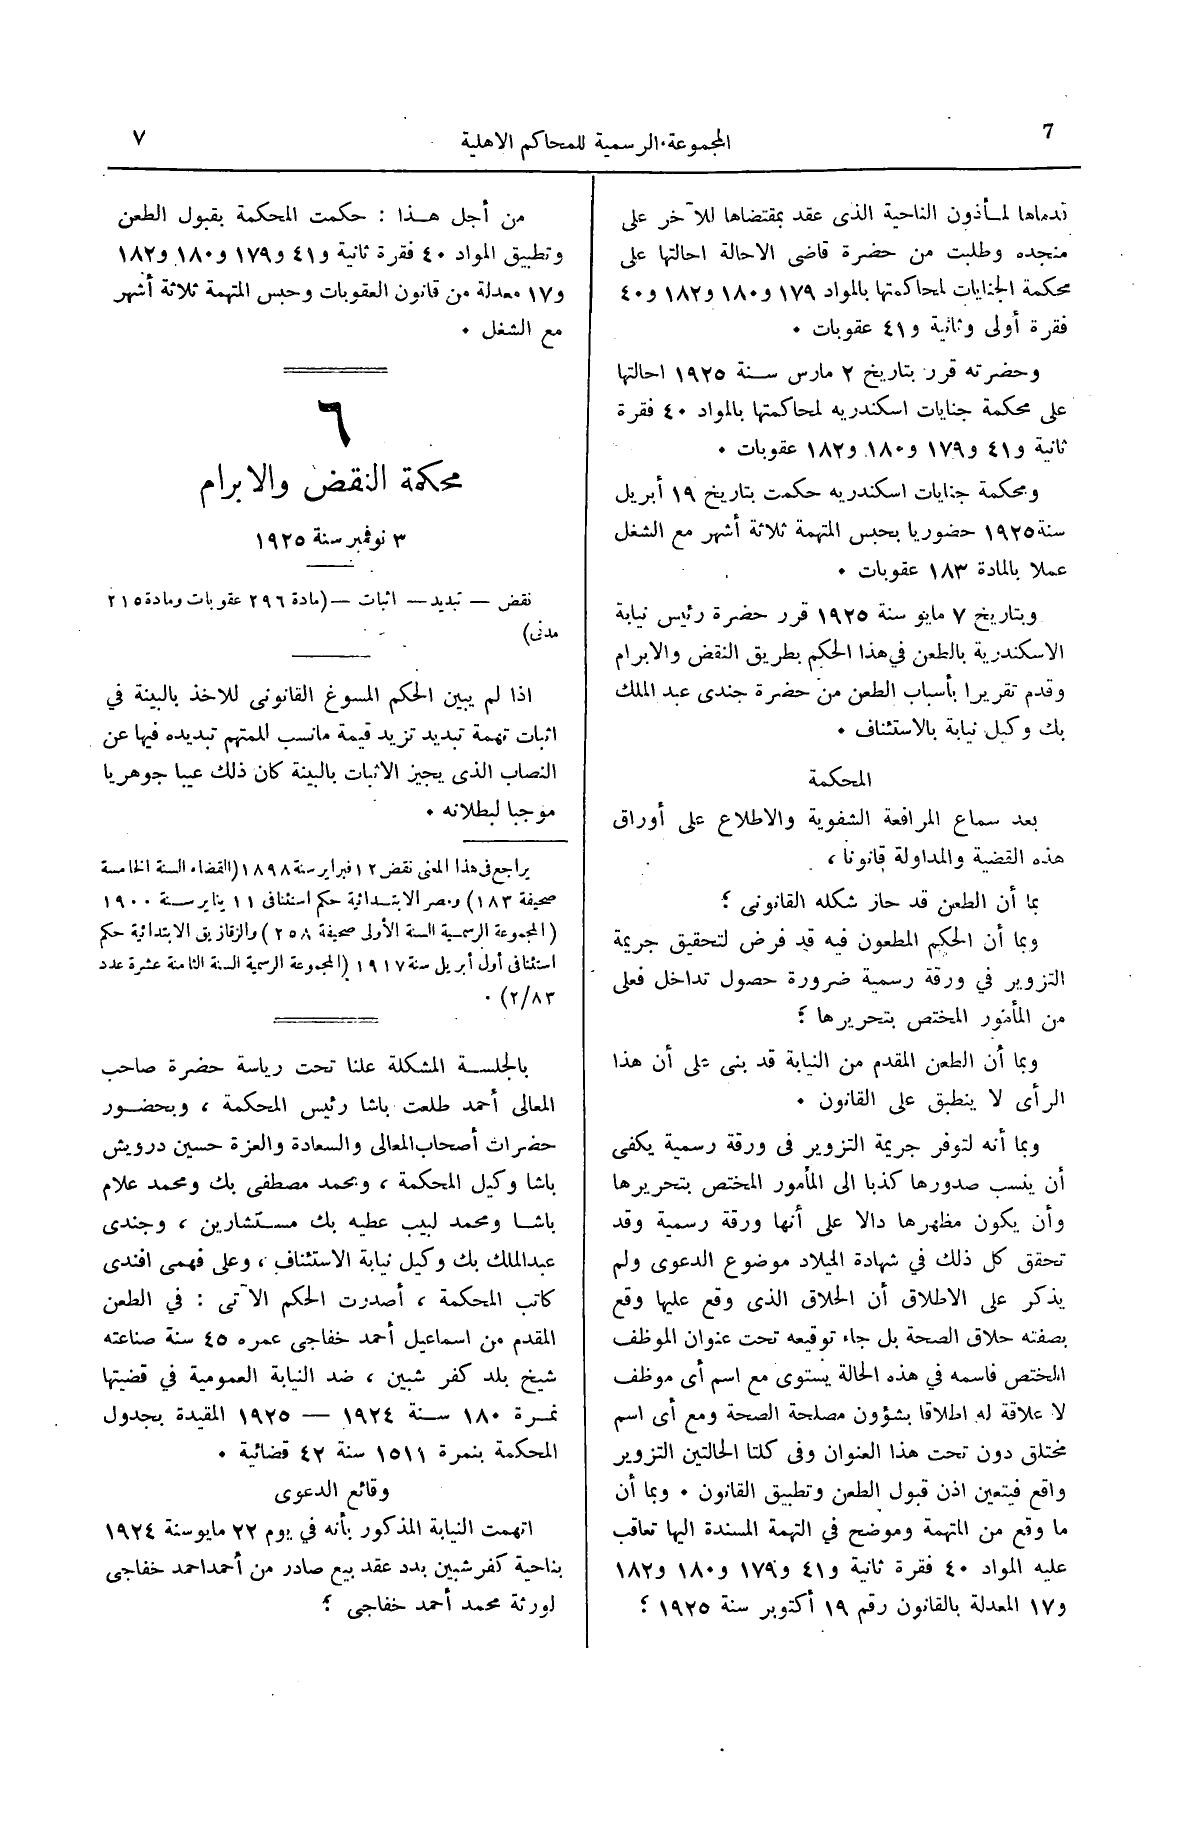 7
المجموعة الرسمية للمحاكم الاهلية
٧
تدماها لمأذون الناحية الذى عقد بمقتضاها للآخر على
منجده وطلبت من حضرة قاضى الاحالة احالتها على
محكمة الجنايات لمحاكمتها بالمواد ١٧٩ و١٨٠ و١٨٢ و٤٠
فقرة أولى وثانية و٤١ عقوبات ٠
وحضرته قرر بتاريخ ٢ مارس سنة ١٩٢٥ احالتها
على محكمة جنايات اسكندريه لمحاكمتها بالمواد ٤٠ فقرة
ثانية و٤١ و١٧٩ و١٨٠ و١٨٢ عقوبات ٠
ومحكمة جنايات اسكندريه حكمت بتاريخ ١٩ أبريل
سنة ١٩٢٥ حضوريا بحبس المتهمة ثلاثة أشهر مع الشغل
عملا بالمادة ١٨٣ عقوبات ٠
وبتاريخ ٧ مايو سنة ١٩٢٥ قرر حضرة رئيس نيابة
الاسكندرية بالطعن في هذا الحكم بطريق النقض والابرام
وقدم تقريرا بأسباب الطعن من حضرة جندى عبد الملك
بك وكيل نيابة بالاستئناف ٠
المحكمة
بعد سماع المرافعة الشفوية والاطلاع على أوراق
هذه القضية والمداولة قانونا ،
بما أن الطعن قد حاز شكله القانونى ؟
وبما أن الحكم المطعون فيه قد فرض لتحقيق جريمة
التزوير في ورقة رسمية ضرورة حصول تداخل فعلى
من المأمور المختص بتحريرها ؟
وبما أن الطعن المقدم من النيابة قد بنى على أن هذا
الرأى لا ينطبق على القانون ٠
وبما أنه لتوفر جريمة التزوير فى ورقة رسمية يكفى
أن ينسب صدورها كذبا الى المأمور المختص بتحريرها
وأن يكون مظهرها دالا على أنها ورقة رسمية وقد
تحقق كل ذلك في شهادة الميلاد موضوع الدعوى ولم
يذكر على الاطلاق أن الحلاق الذى وقع عليها وقع
بصفته حلاق الصحة بل جاء توقيعه تحت عنوان الموظف
المختص فاسمه في هذه الحالة يستوى مع اسم أى موظف
لا علاقة له اطلاقا بشؤون مصلحة الصحة ومع أى اسم
مختلق دون تحت هذا العنوان وفى كلتا الحالتين التزوير
واقع فيتعين اذن قبول الطعن وتطبيق القانون ٠ وبما أن
ما وقع من المتهمة وموضح في التهمة المسندة اليها تعاقب
عليه المواد ٤٠ فقرة ثانية و٤١ و١٧٩ و١٨٠ و١٨٢
و١٧ المعدلة بالقانون رقم ١٩ أكتوبر سنة ١٩٢٥ ؟
من أجل هذا : حكمت المحكمة بقبول الطعن
وتطبيق المواد ٤٠ فقرة ثانية و٤١ و١٧٩ و١٨٠ و١٨٢
و١٧ معدلة من قانون العقوبات وحبس المتهمة ثلاثة أشهر
مع الشغل ٠
٦
محكمة النقض والابرام
٣ نوفمبر سنة ١٩٢٥
نقض — تبديد — اثبات — (مادة ٢٩٦ عقوبات ومادة ٢١٥
مدنى)
اذا لم يبين الحكم المسوغ القانونى للاخذ بالبينة في
اثبات تهمة تبديد تزيد قيمة مانسب للمتهم تبديده فيها عن
النصاب الذى يجيز الاثبات بالبينة كان ذلك عيبا جوهريا
موجبا لبطلانه ٠
يراجع فى هذا المعنى نقض ١٢ فبراير سنة ١٨٩٨ (القضاء السنة الخامسة
صحيفة ١٨٣) ومصر الابتدائية حكم استئنافى ١١ يناير سنة ١٩٠٠
(المجموعة الرسمية السنة الأولى صحيفة ٢٥٨) والزقازيق الابتدائية حكم
استئنافى أول أبريل سنة ١٩١٧ (المجموعة الرسمية السنة الثامنة عشرة عدد
٢/٨٣) ٠
بالجلسة المشكلة علنا تحت رياسة حضرة صاحب
المعالى أحمد طلعت باشا رئيس المحكمة ، وبحضور
حضرات أصحاب المعالى والسعادة والعزة حسين درويش
باشا وكيل المحكمة ، ومحمد مصطفى بك ومحمد علام
باشا ومحمد لبيب عطيه بك مستشارين ، وجندى
عبدالملك بك وكيل نيابة الاستئناف ، وعلى فهمى افندى
كاتب المحكمة ، أصدرت الحكم الآتى : في الطعن
المقدم من اسماعيل أحمد خفاجى عمره ٤٥ سنة صناعته
شيخ بلد كفر شبين ، ضد النيابة العمومية في قضيتها
نمرة ١٨٠ سنة ١٩٢٤ — ١٩٢٥ المقيدة بجدول
المحكمة بنمرة ١٥١١ سنة ٤٢ قضائية ٠
وقائع الدعوى
اتهمت النيابة المذكور بأنه في يوم ٢٢ مايو سنة ١٩٢٤
بناحية كفر شبين بدد عقد بيع صادر من أحمد احمد خفاجى
لورثة محمد أحمد خفاجى ؟